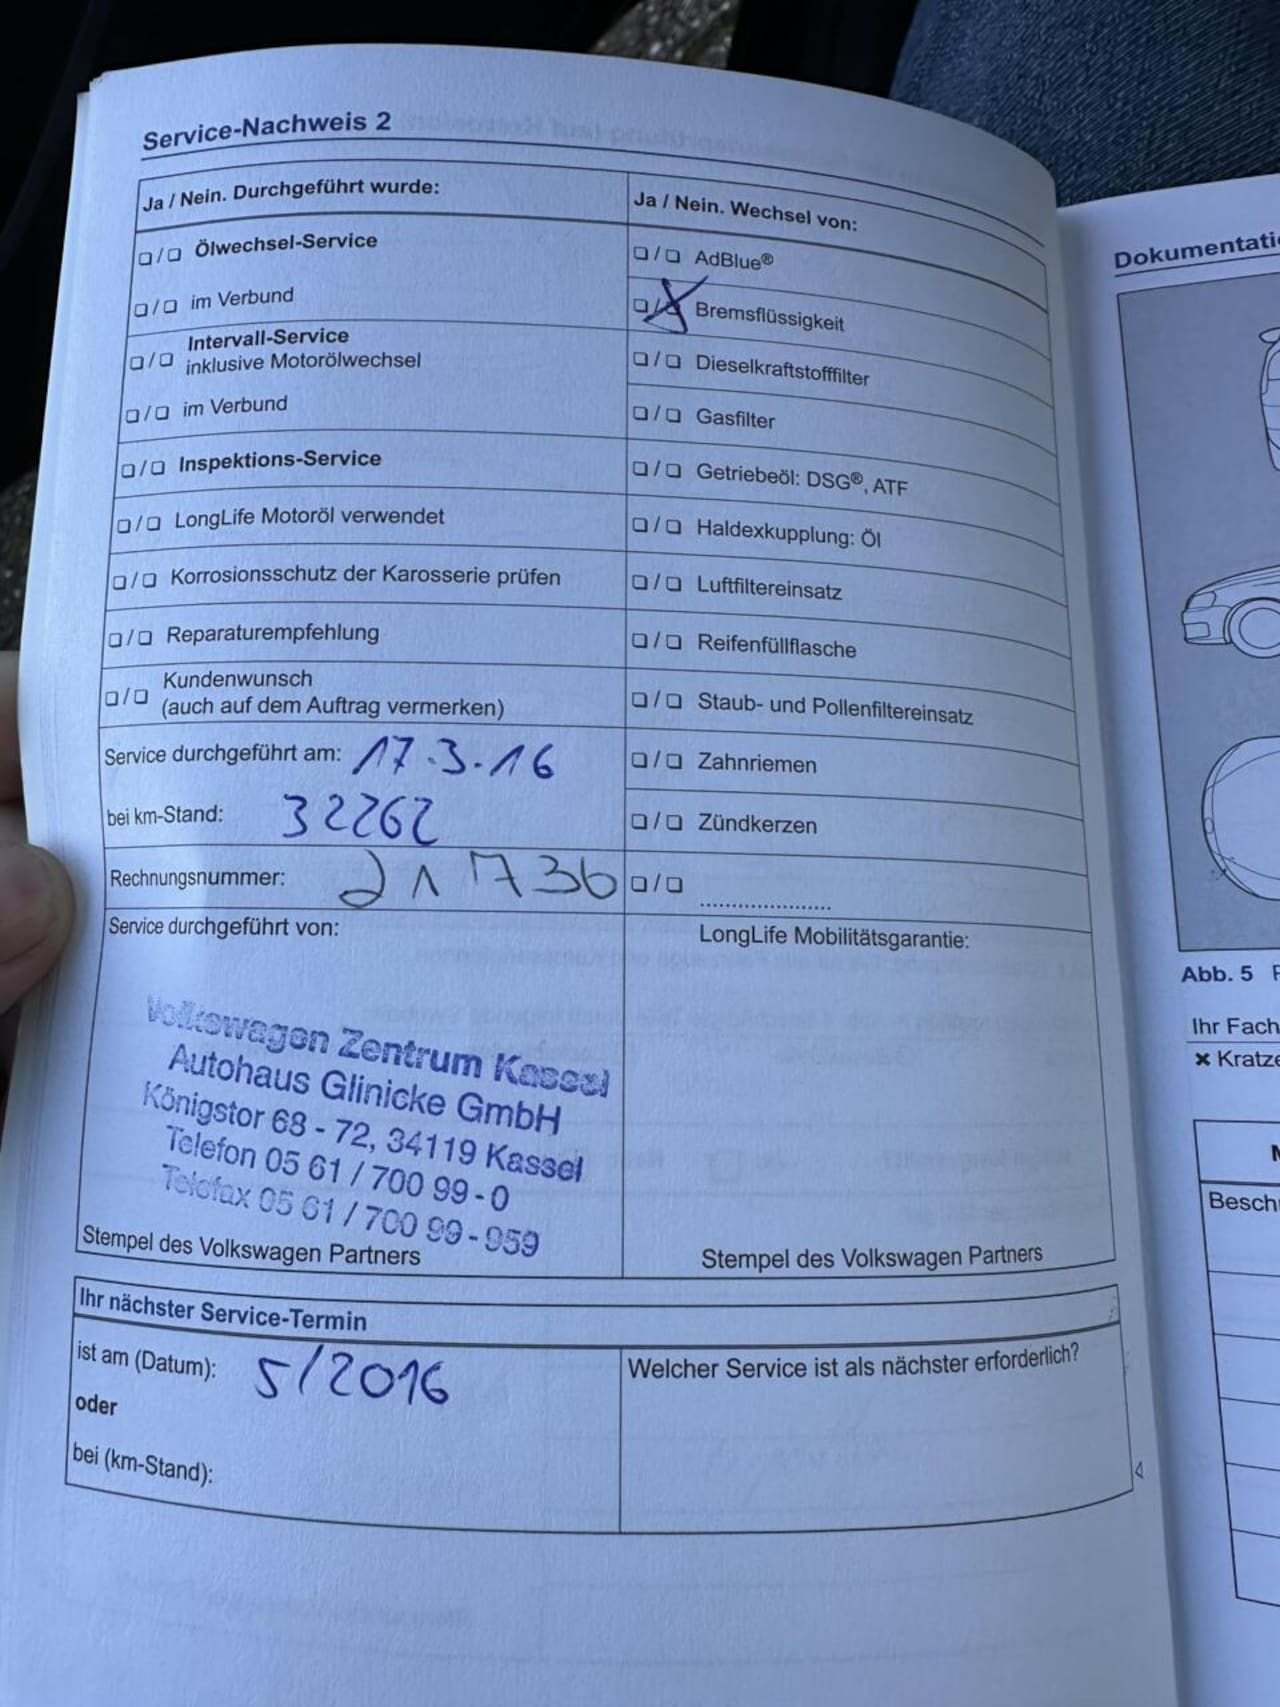 Service-Nachweis 2
Ja / Nein. Durchgeführt wurde:
❏ / ❏ Ölwechsel-Service
❏ / ❏ im Verbund
❏ / ❏ Intervall-Service
inklusive Motorölwechsel
❏ / ❏ im Verbund
❏ / ❏ Inspektions-Service
❏ / ❏ LongLife Motoröl verwendet
❏ / ❏ Korrosionsschutz der Karosserie prüfen
❏ / ❏ Reparaturempfehlung
❏ / ❏ Kundenwunsch
(auch auf dem Auftrag vermerken)
Service durchgeführt am: 17.3.16
bei km-Stand: 32262
Rechnungsnummer: 211736
Service durchgeführt von:
Volkswagen Zentrum Kassel
Autohaus Glinicke GmbH
Königstor 68 - 72, 34119 Kassel
Telefon 05 61 / 700 99 - 0
Telefax 05 61 / 700 99 - 959
Stempel des Volkswagen Partners
Ja / Nein. Wechsel von:
❏ / ❏ AdBlue®
❏ / X Bremsflüssigkeit
❏ / ❏ Dieselkraftstofffilter
❏ / ❏ Gasfilter
❏ / ❏ Getriebeöl: DSG®, ATF
❏ / ❏ Haldexkupplung: Öl
❏ / ❏ Luftfiltereinsatz
❏ / ❏ Reifenfüllflasche
❏ / ❏ Staub- und Pollenfiltereinsatz
❏ / ❏ Zahnriemen
❏ / ❏ Zündkerzen
❏ / ❏ .....................
LongLife Mobilitätsgarantie:
Stempel des Volkswagen Partners
Ihr nächster Service-Termin
ist am (Datum): 5/2016
oder
bei (km-Stand):
Welcher Service ist als nächster erforderlich?
Dokumentati
Abb. 5
Ihr Fach
× Kratze
Besch